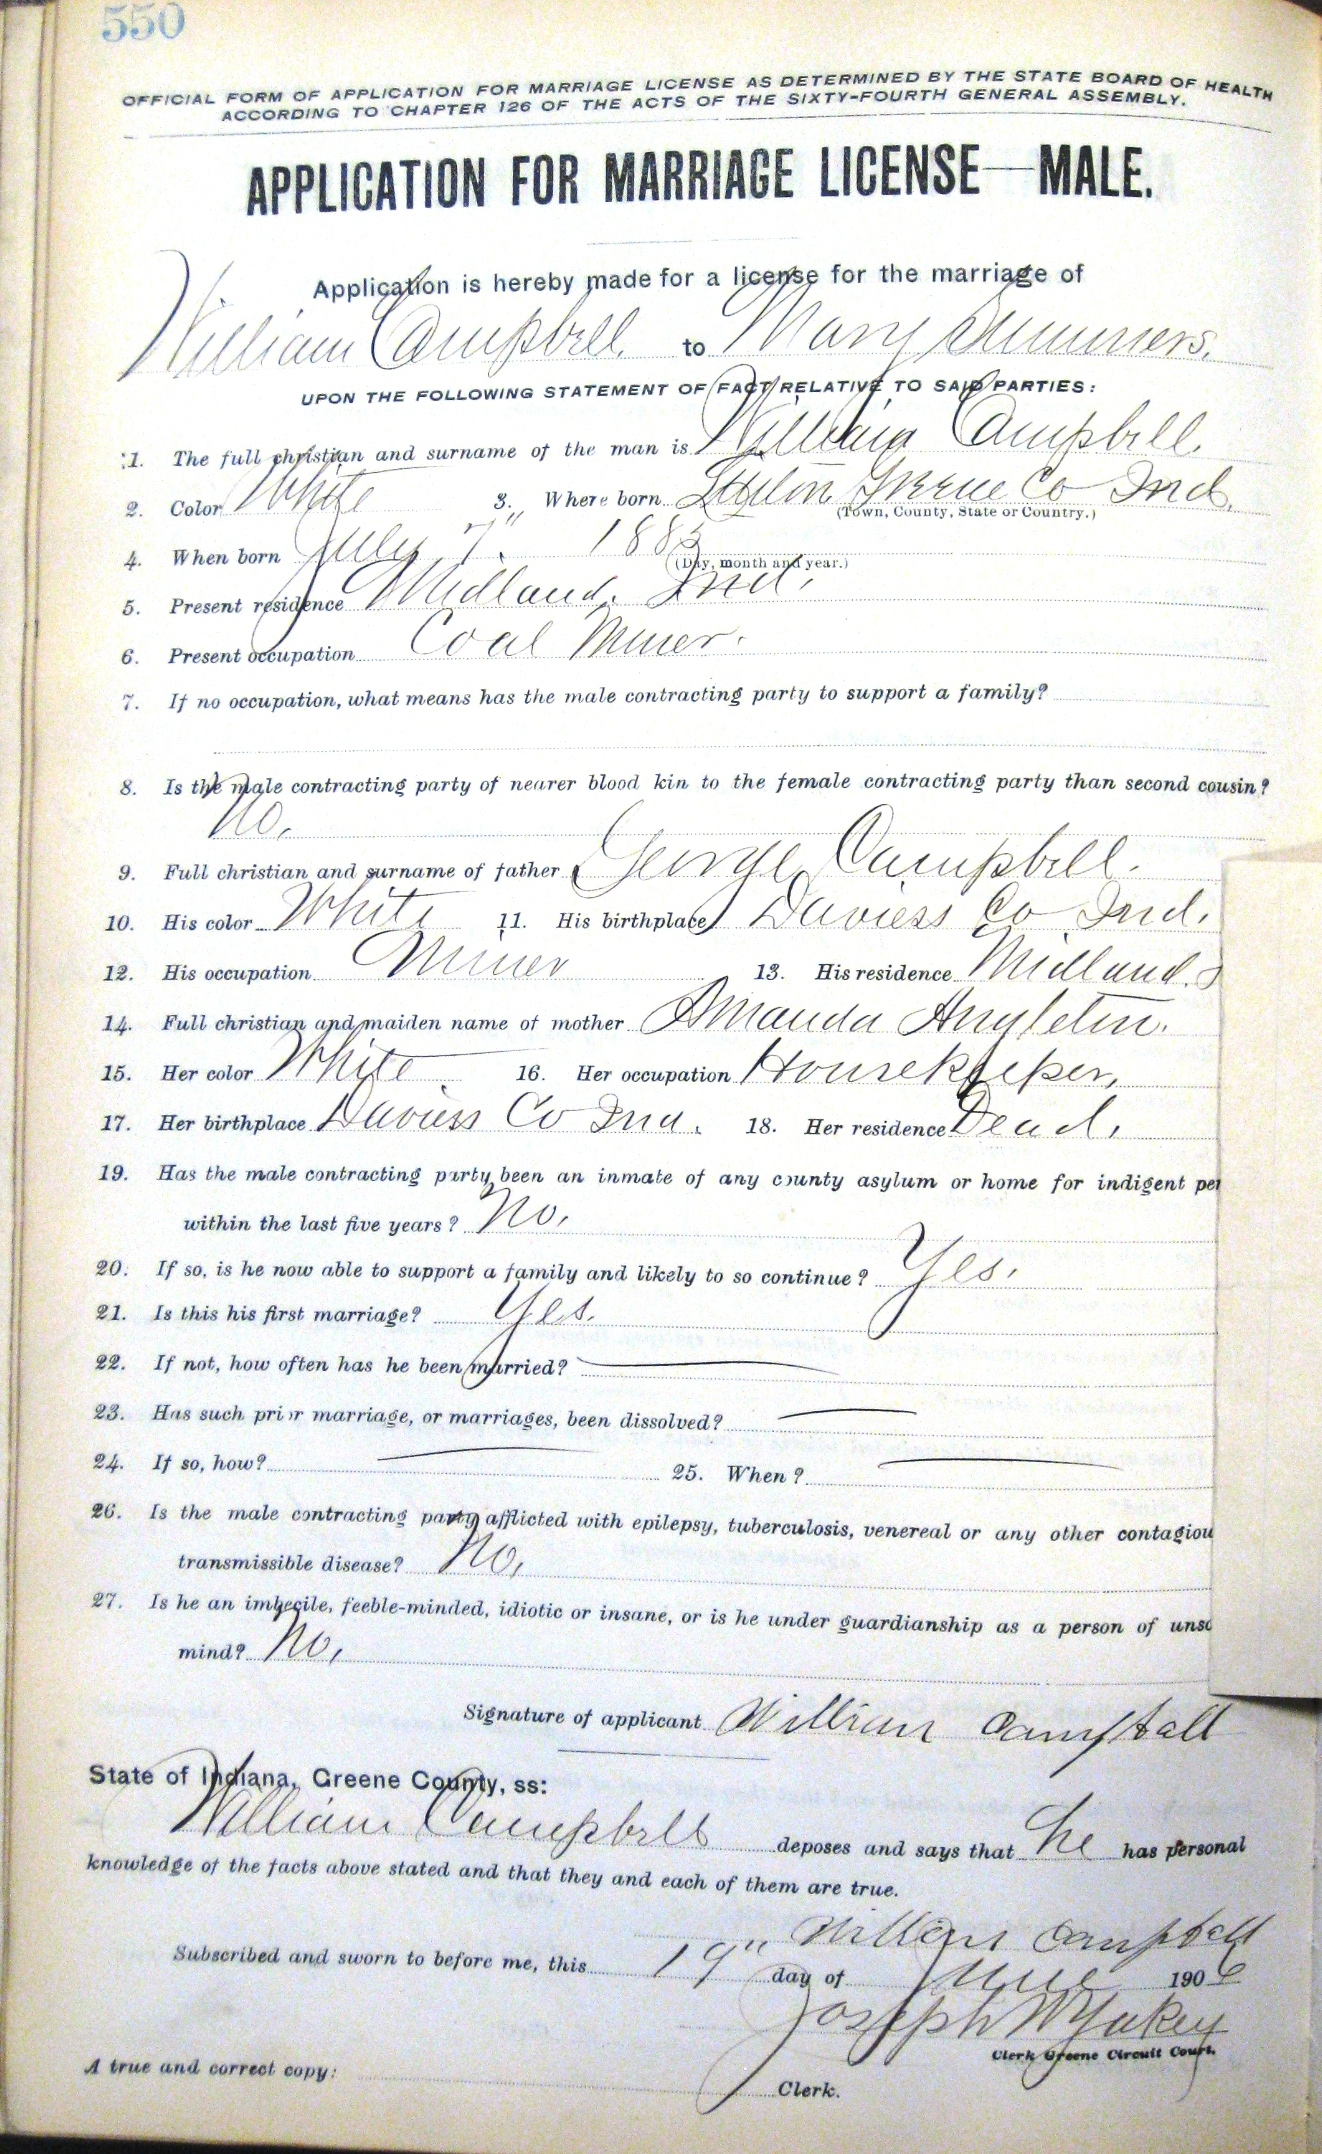 550
OFFICIAL FORM OF APPLICATION FOR MARRIAGE LICENSE AS DETERMINED BY THE STATE BOARD OF HEALTH
ACCORDING TO CHAPTER 126 OF THE ACTS OF THE SIXTY-FOURTH GENERAL ASSEMBLY.
APPLICATION FOR MARRIAGE LICENSE—MALE.
Application is hereby made for a license for the marriage of
William Campbell. to Mary Summers.
UPON THE FOLLOWING STATEMENT OF FACT RELATIVE TO SAID PARTIES:
1. The full christian and surname of the man is William Campbell.
2. Color White 3. Where born Greene Co Ind.
(Town, County, State or Country.)
4. When born July 7" 1883
(Day, month and year.)
5. Present residence Midland, Ind.
6. Present occupation Coal Miner.
7. If no occupation, what means has the male contracting party to support a family?
8. Is the male contracting party of nearer blood kin to the female contracting party than second cousin?
No.
9. Full christian and surname of father George Campbell.
10. His color White 11. His birthplace Daviess Co Ind.
12. His occupation Miner 13. His residence Midland.
14. Full christian and maiden name of mother Amanda Angleton.
15. Her color White. 16. Her occupation Housekeeper,
17. Her birthplace Daviess Co Ind. 18. Her residence Dead.
19. Has the male contracting party been an inmate of any county asylum or home for indigent per
within the last five years? No.
20. If so, is he now able to support a family and likely to so continue? Yes.
21. Is this his first marriage? Yes.
22. If not, how often has he been married?
23. Has such prior marriage, or marriages, been dissolved?
24. If so, how? 25. When?
26. Is the male contracting party afflicted with epilepsy, tuberculosis, venereal or any other contagiou
transmissible disease? No.
27. Is he an imbecile, feeble-minded, idiotic or insane, or is he under guardianship as a person of unso
mind? No.
Signature of applicant William Campball
State of Indiana, Greene County, ss:
William Campbell deposes and says that he has personal
knowledge of the facts above stated and that they and each of them are true.
William Campball
Subscribed and sworn to before me, this 19" day of June 1906
Joseph W Yakey
Clerk Greene Circuit Court.
A true and correct copy: Clerk.